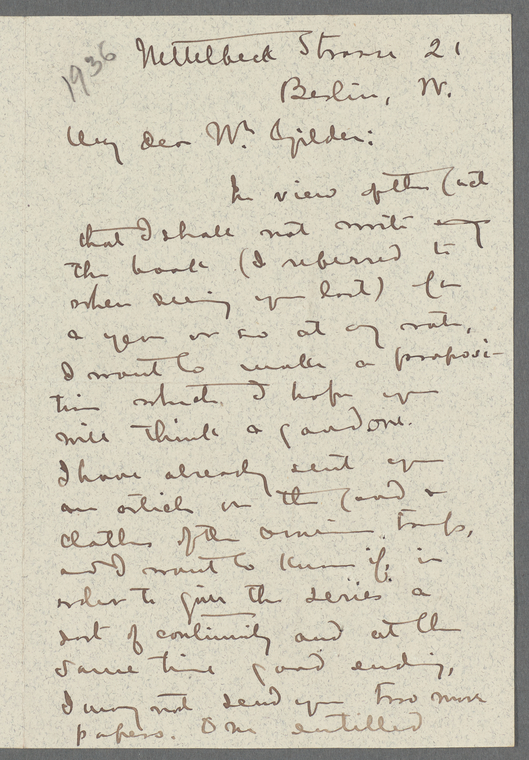 1936
Nettelbeck Strasse 21
Berlin, W.
My dear Mr. Gilder:
In view of the fact
that I shall not write
the book (I referred to
when seeing you last) for
a year or so at any rate,
I want to make a proposi-
tion which I hope you
will think a good one.
I have already sent you
an article on the food &
clothes of the armies troops,
and I want to know if, in
order to give the series a
sort of continuity and at the
same time good ending,
I may not send you two more
papers. One entitled